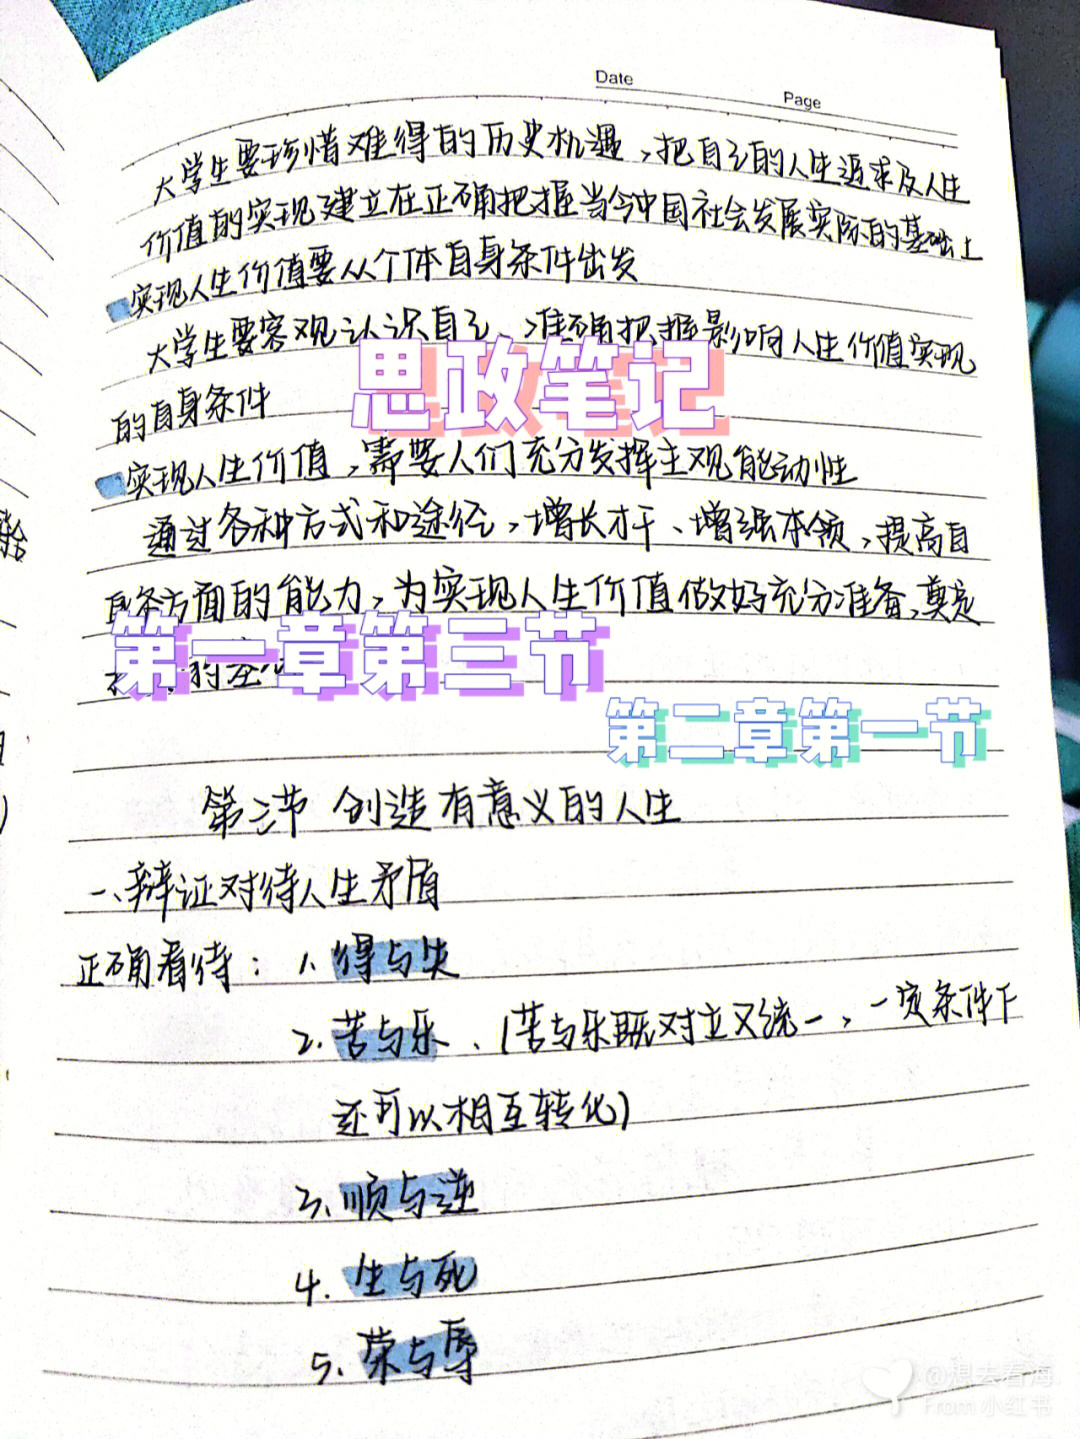 Date
Page
大学生要珍惜难得的历史机遇，把自己的人生追求及人生
价值的实现建立在正确把握当今中国社会发展实际的基础上
实现人生价值要从个体自身条件出发
大学生要客观认识自己、准确把握影响人生价值实现
思政笔记
的自身条件
实现人生价值，需要人们充分发挥主观能动性
通过各种方式和途径，增长才干、增强本领，提高自
身各方面的能力，为实现人生价值做好充分准备，奠定
第一章第三节
的基
第二章第一节
第三节 创造有意义的人生
一、辩证对待人生矛盾
正确看待：1.得与失
2.苦与乐、(苦与乐既对立又统一，一定条件下
还可以相互转化)
3.顺与逆
4.生与死
5.荣与辱
@想去看海
From 小红书